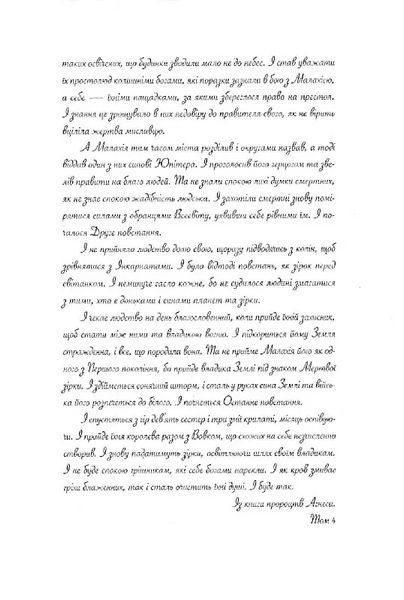 таких освічених, що будинки зводили мало не до небес. І став уважати
їх простолюд колишніми богами, які поразки зазнали в бою з Малахією,
а себе — їхніми нащадками, за якими збереглося право на престол.
І знання це зрощувало в них недовіру до правителя свого, як не вірить
вціліла жертва мисливцю.
А Малахія тим часом міста розділив і округами назвав, а тоді
віддав один з них синові Юпітера. І проголосив його герцогом та зве-
лів правити на благо людей. Та не знали спокою лихі думки смертних,
як не знає спокою жадібність людська. І захотіли смертні знову помі-
рятися силами з обранцями Всесвіту, уявивши себе рівними їм. І по-
чалося Друге повстання.
І не прийняло людство долю свою, щоразу підводячись з колін, щоб
зрівнятися з Інкарнатами. І було відтоді повстань, як зірок перед
світанком. І неминуче гасло кожне, бо не судилося людині змагатися
з тими, хто є доньками і синами планет та зірки.
І чекає людство на день благословенний, коли прийде їхній захисник,
щоб стати між ними та владикою вогню. І підкориться йому Земля
стражденна, і все, що породила вона. Та не прийме Малахія його як одно-
го з Першого покоління, бо прийде владика Землі під знаком Мертвої
зірки. І здійметься сонячний шторм, і сталь у руках сина Землі та війсь-
ка його розпечеться до білого. І почнеться Останнє повстання.
І спустяться з гір дев'ять сестер і три змії крилаті, місяць оспівую-
чи. І прийде їхня королева разом з Вовком, що схожих на себе незчисленно
створив. І знову падатимуть зірки, освітлюючи шлях своїм владикам.
І не буде спокою грішникам, які себе богами нарекли. І як кров змиває
гріхи блаженних, так і сталь очистить їхні душі. І буде так.
Із книги пророцтв Агнеси.
Том 4